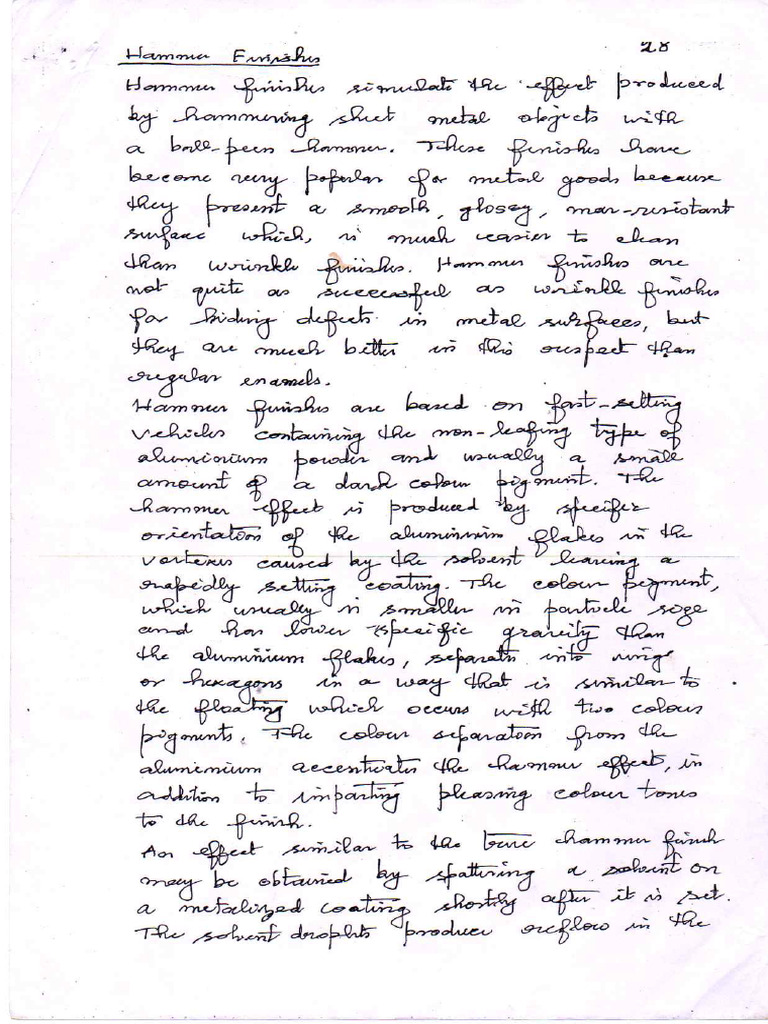 Hammer Finishes
28
Hammer finishes simulate the effect produced
by hammering sheet metal objects with
a ball-peen hammer. These finishes have
become very popular for metal goods because
they present a smooth, glossy, mar-resistant
surface which, is much easier to clean
than wrinkle finishes. Hammer finishes are
not quite as successful as wrinkle finishes
for hiding defects in metal surfaces, but
they are much better in this respect than
regular enamels.
Hammer finishes are based on fast-setting
vehicles containing the non-leafing type of
aluminium powder and usually a small
amount of a dark colour pigment. The
hammer effect is produced by specific
orientation of the aluminium flakes in the
vortexes caused by the solvent leaving a
rapidly setting coating. The colour pigment,
which usually is smaller in particle size
and has lower specific gravity than
the aluminium flakes, separates into rings
or hexagons in a way that is similar to
the floating which occurs with two colour
pigments. The colour separation from the
aluminium accentuates the hammer effect, in
addition to imparting pleasing colour tones
to the finish.
An effect similar to the true hammer finish
may be obtained by spattering a solvent on
a metalized coating shortly after it is set.
The solvent droplets produce reflow in the